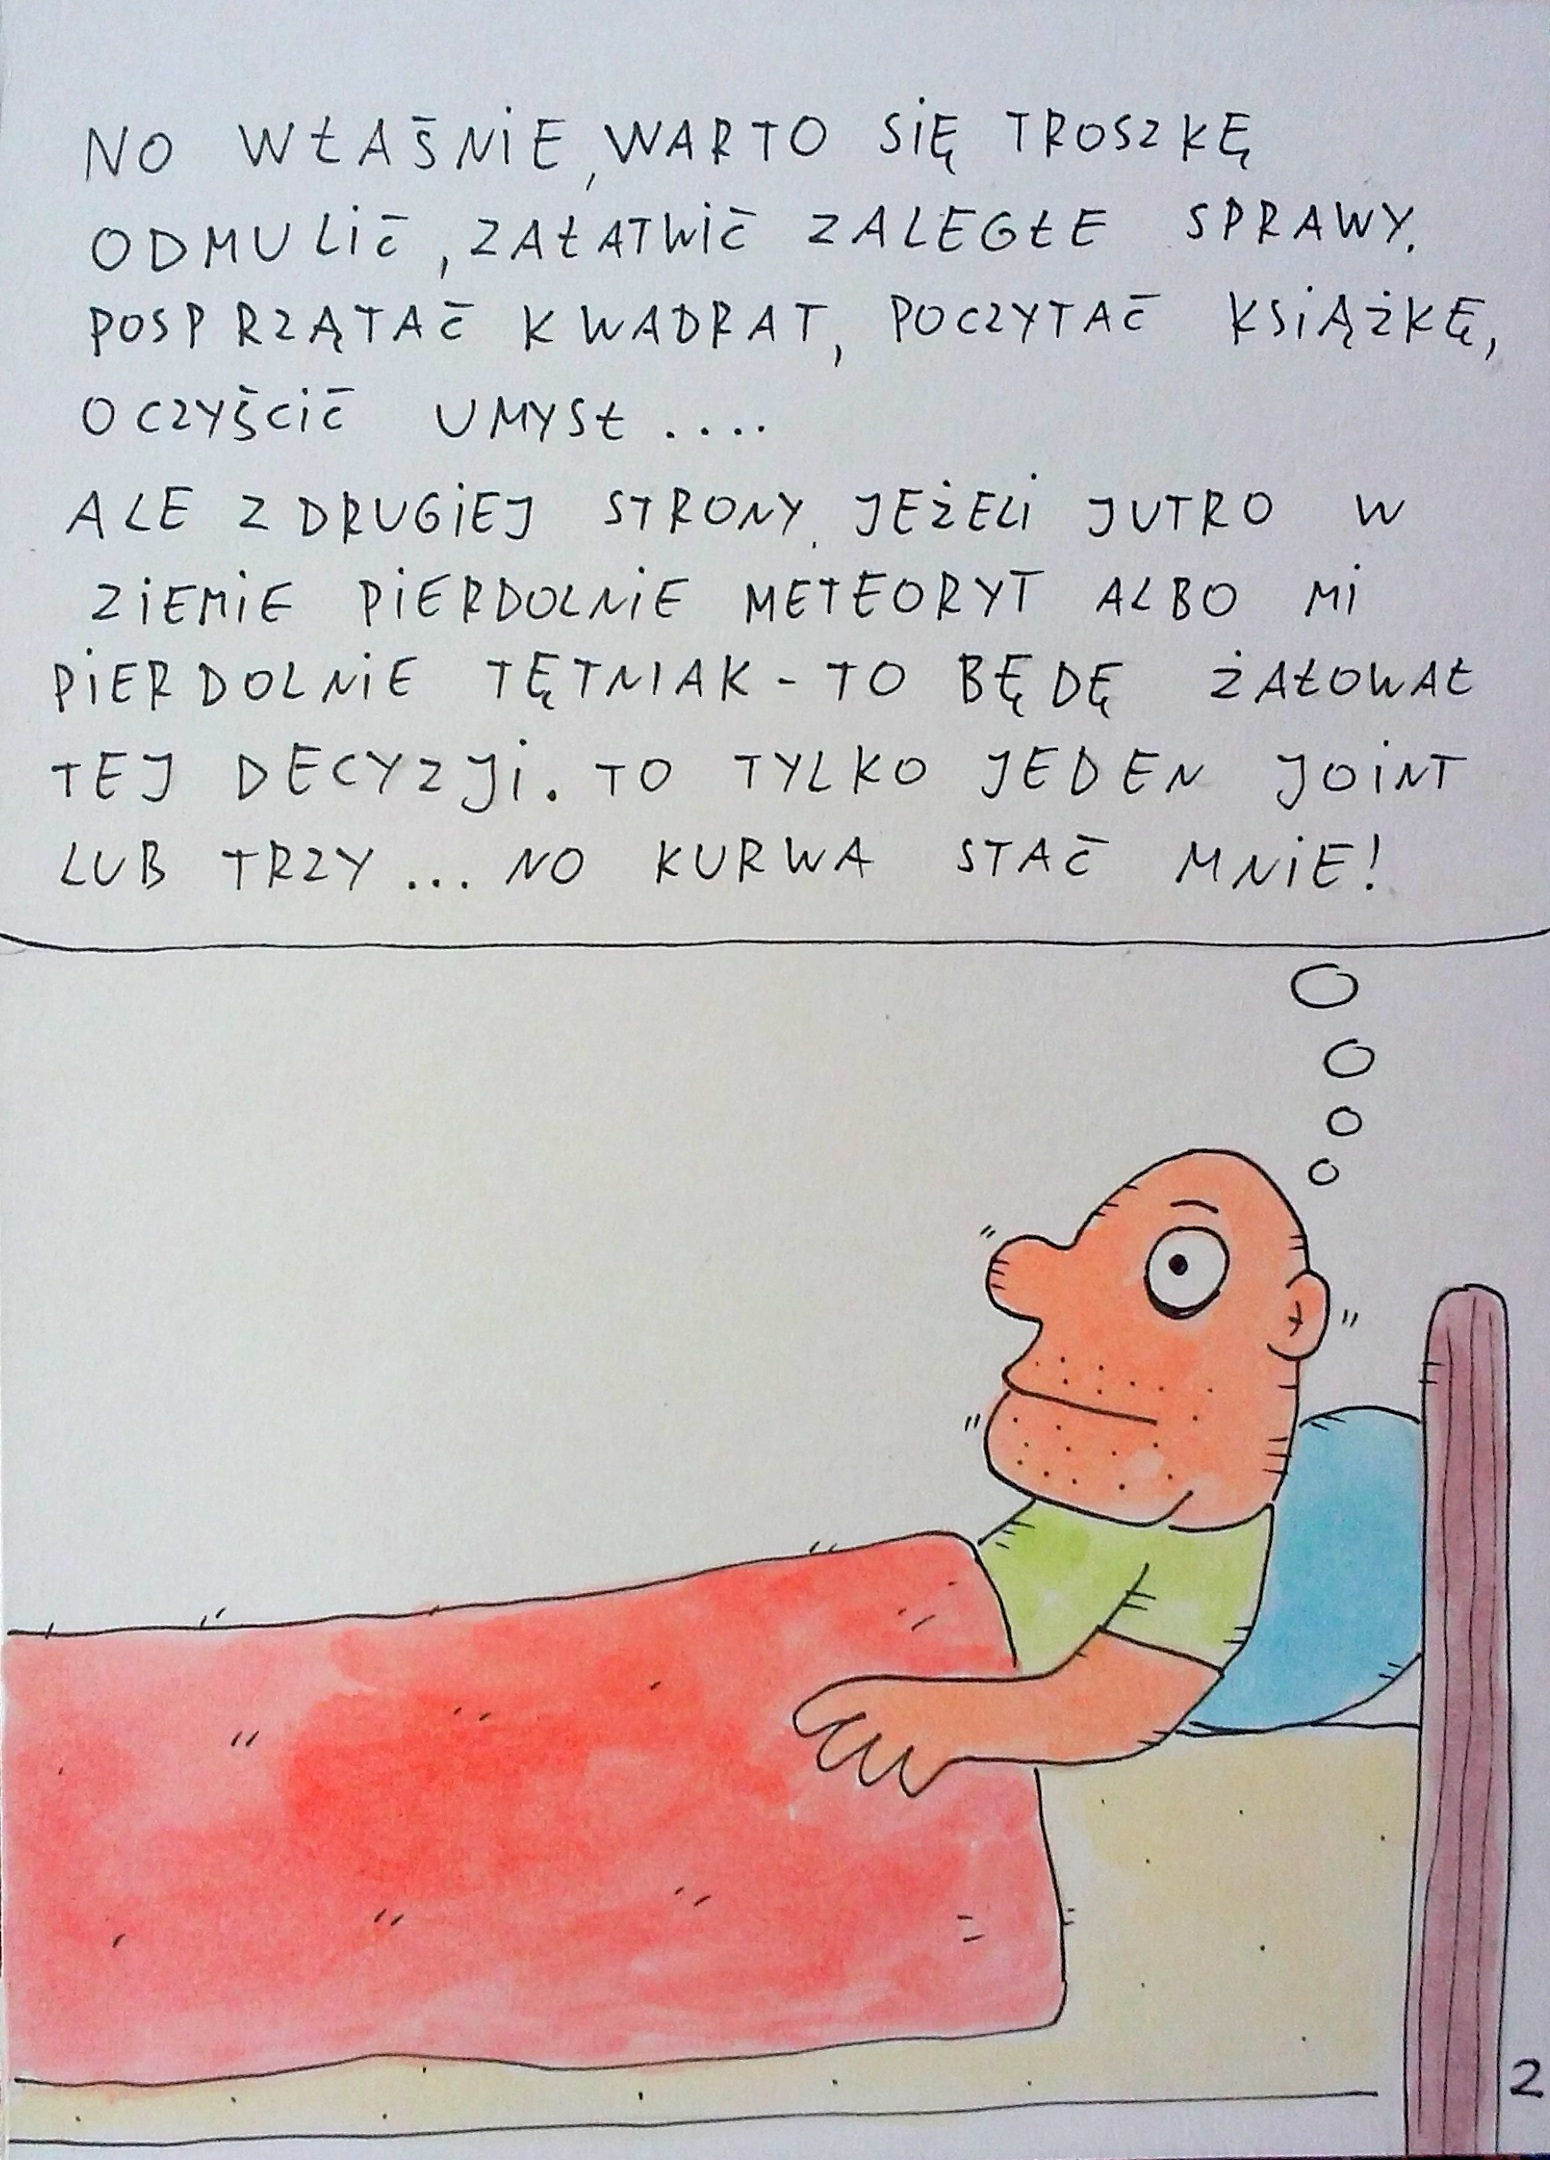 NO WŁAŚNIE, WARTO SIĘ TROSZKĘ
ODMULIĆ, ZAŁATWIĆ ZALEGŁE SPRAWY.
POSPRZĄTAĆ KWADRAT, POCZYTAĆ KSIĄŻKĘ,
OCZYŚCIĆ UMYSŁ ....
ALE Z DRUGIEJ STRONY, JEŻELI JUTRO W
ZIEMIE PIERDOLNIE METEORYT ALBO MI
PIERDOLNIE TĘTNIAK - TO BĘDĘ ŻAŁOWAŁ
TEJ DECYZJI. TO TYLKO JEDEN JOINT
LUB TRZY ... NO KURWA STAĆ MNIE!
2